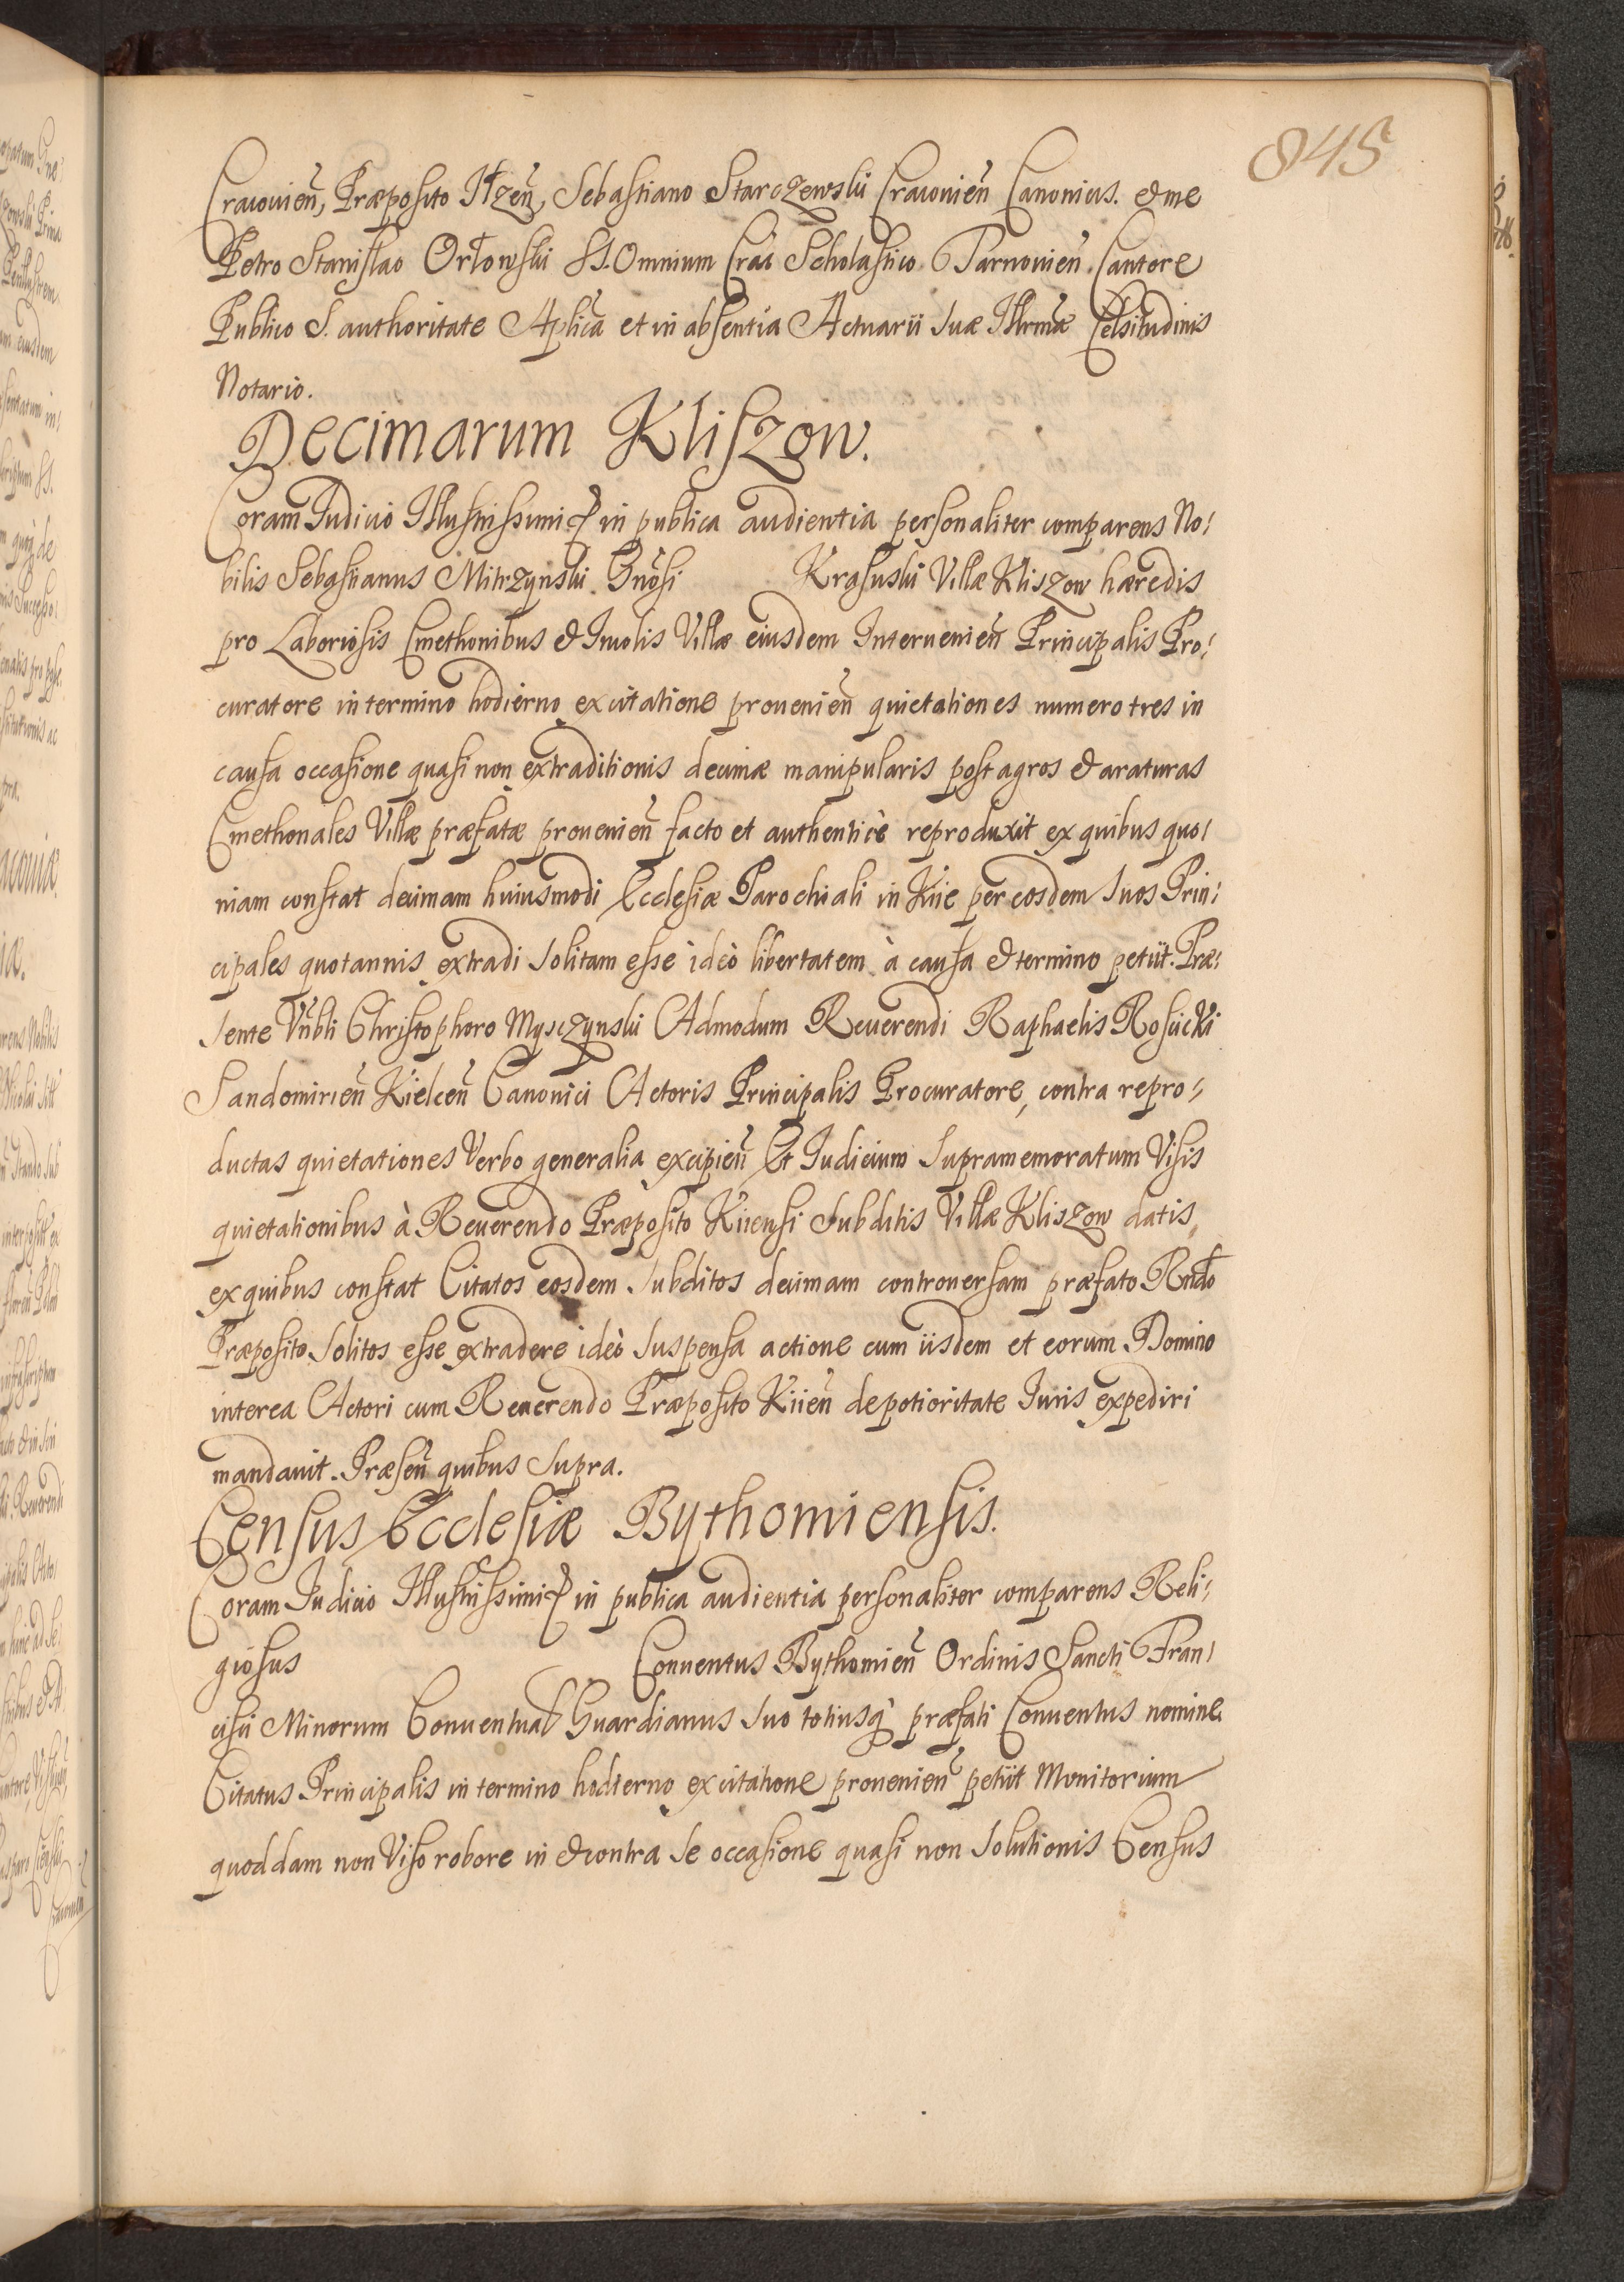 845
Cracouien̄, Præposito Iłzen̄, Sebastiano Starczewski Cracouien̄ Canonicis. & me
Petro Stanislao Orłowski SS. Omnium Crac̄ Scholastico Tarnouien̄ Cantore
Publico S. authoritate Aplic̄a et in absentia Actuarii suæ Illrmæ Celsitudinis
Notario.
Decimarum Kliszow.
Coram Iudicio Illustrissimi & in publica audientia personaliter comparens No:
bilis Sebastianus Mitrzynski Gn̄osi Krasuski Villæ Kliszow hæredis
pro Laboriosis Cmethonibus & Incolis Villæ eiusdem Interuenien̄ Principalis Pro:
curatore in termino hodierno ex citatione prouenien̄ quietationes numero tres in
causa occasione quasi non extraditionis decimæ manipularis post agros & araturas
Cmethonales Villæ præfatæ prouenien̄ facto et authenticè reproduxit ex quibus quo:
niam constat decimam huiusmodi Ecclesiæ Parochiali in Kiie per eosdem suos Prin:
cipales quotannis extradi solitam esse ideò libertatem à causa & termino petiit. Præ:
sente Vn̄bli Christophoro Mysczynski Admodum Reuerendi Raphaelis Rosiicki
Sandomirien̄ Kielcen̄ Canonici Actoris Principalis Procuratore, contra repro:
ductas quietationes Verbo generalia excipien̄ Et Iudicium supramemoratum Visis
quietationibus à Reuerendo Præposito Kiiensi subditis Villæ Kliszow datis,
ex quibus constat Citatos eosdem subditos decimam controuersam præfato Rn̄do
Præposito solitos esse extradere ideò suspensa actione cum iisdem et eorum Domino
interea Actori cum Reuerendo Præposito Kiien̄ de potioritate Iuris expediri
mandauit. Præsen̄ quibus supra.
Census Ecclesiæ Bythomiensis.
Coram Iudicio Illustrissimi & in publica audientia personaliter comparens Reli:
giosus Conuentus Bythomien̄ Ordinis Sancti Fran:
cisci Minorum Conuentual Guardianus suo totiusq̀ præfati Conuentus nomine
Citatus Principalis in termino hodierno ex citatione prouenien̄ petiit Monitorium
quoddam non Viso robore in & contra se occasione quasi non solutionis Census